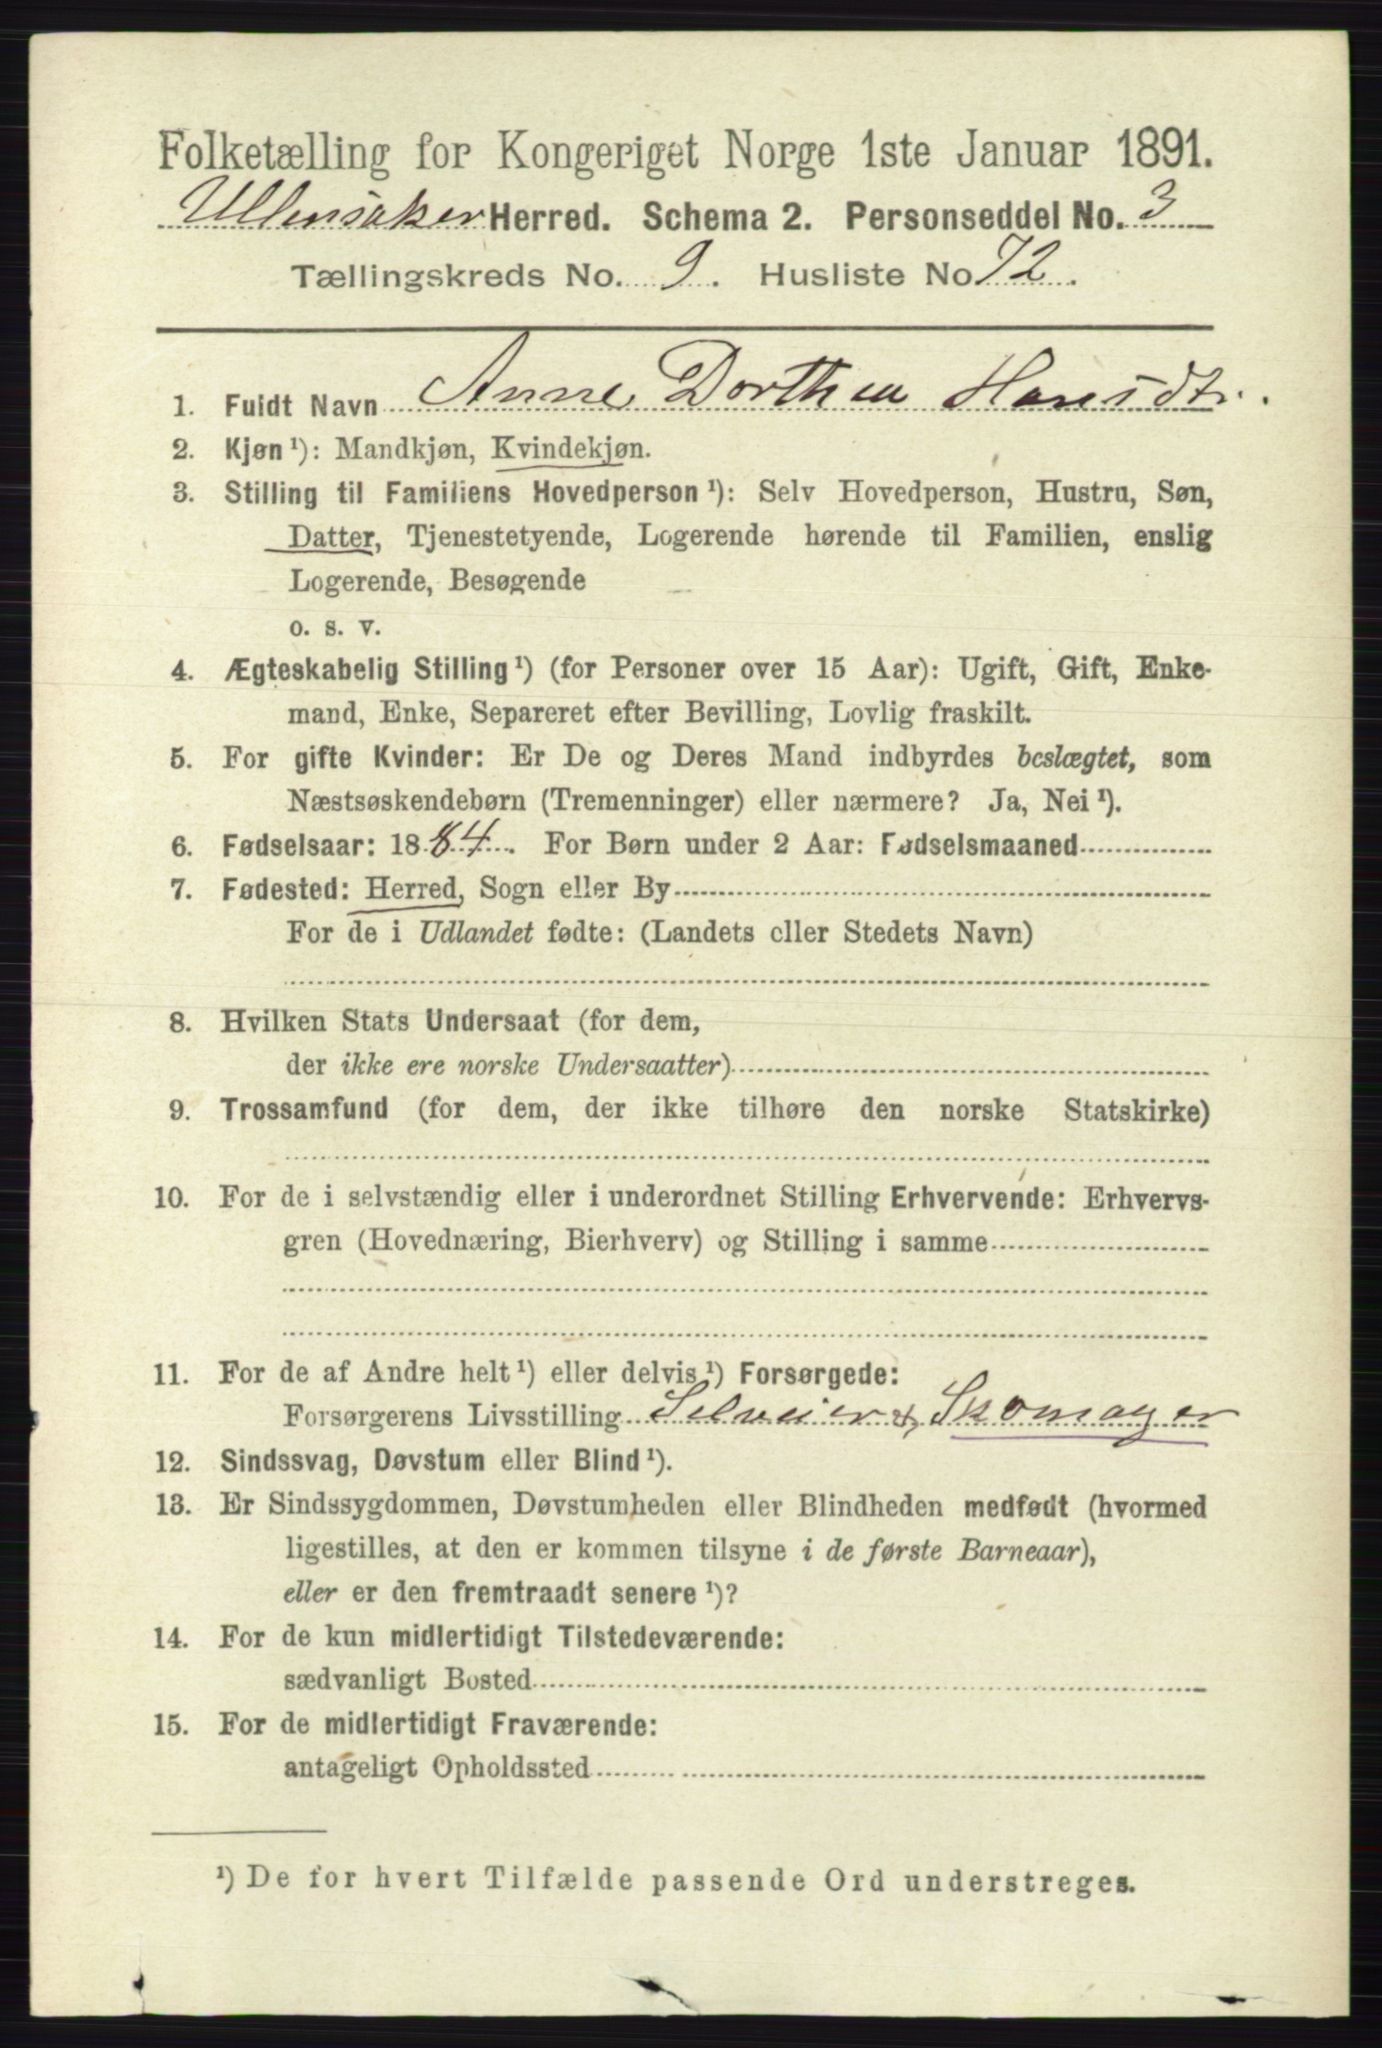 Folketælling for Kongeriget Norge 1ste Januar 1891.
Ullensaker Herred. Schema 2. Personseddel No. 3
Tællingskreds No. 9. Husliste No 72.
1. Fuldt Navn Anne Dorthea Hansdtr.
2. Kjøn ¹): Mandkjøn, Kvindekjøn.
3. Stilling til Familiens Hovedperson ¹): Selv Hovedperson, Hustru, Søn,
Datter, Tjenestetyende, Logerende hørende til Familien, enslig
Logerende, Besøgende
o. s. v.
4. Ægteskabelig Stilling ¹) (for Personer over 15 Aar): Ugift, Gift, Enke-
mand, Enke, Separeret efter Bevilling, Lovlig fraskilt.
5. For gifte Kvinder: Er De og Deres Mand indbyrdes beslægtet, som
Næstsøskendebørn (Tremenninger) eller nærmere? Ja, Nei ¹).
6. Fødselsaar: 1884. For Børn under 2 Aar: Fødselsmaaned
7. Fødested: Herred, Sogn eller By
For de i Udlandet fødte: (Landets eller Stedets Navn)
8. Hvilken Stats Undersaat (for dem,
der ikke ere norske Undersaatter)
9. Trossamfund (for dem, der ikke tilhøre den norske Statskirke)
10. For de i selvstændig eller i underordnet Stilling Erhvervende: Erhvervs-
gren (Hovednæring, Bierhverv) og Stilling i samme
11. For de af Andre helt ¹) eller delvis ¹) Forsørgede:
Forsørgerens Livsstilling Selveier &, Skomager
12. Sindssvag, Døvstum eller Blind ¹).
13. Er Sindssygdommen, Døvstumheden eller Blindheden medfødt (hvormed
ligestilles, at den er kommen tilsyne i de første Barneaar),
eller er den fremtraadt senere ¹)?
14. For de kun midlertidigt Tilstedeværende:
sædvanligt Bosted
15. For de midlertidigt Fraværende:
antageligt Opholdssted
¹) De for hvert Tilfælde passende Ord understreges.